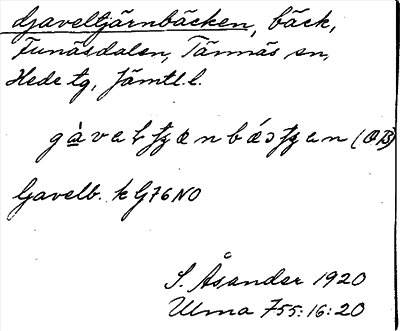 Gaveltjärnbäcken, bäck,
Funäsdalen, Tännäs sn,
Hede tg, Jämtl. l.
Gavelb. k G76NO
S. Åsander 1920
Ulma 755:16:20